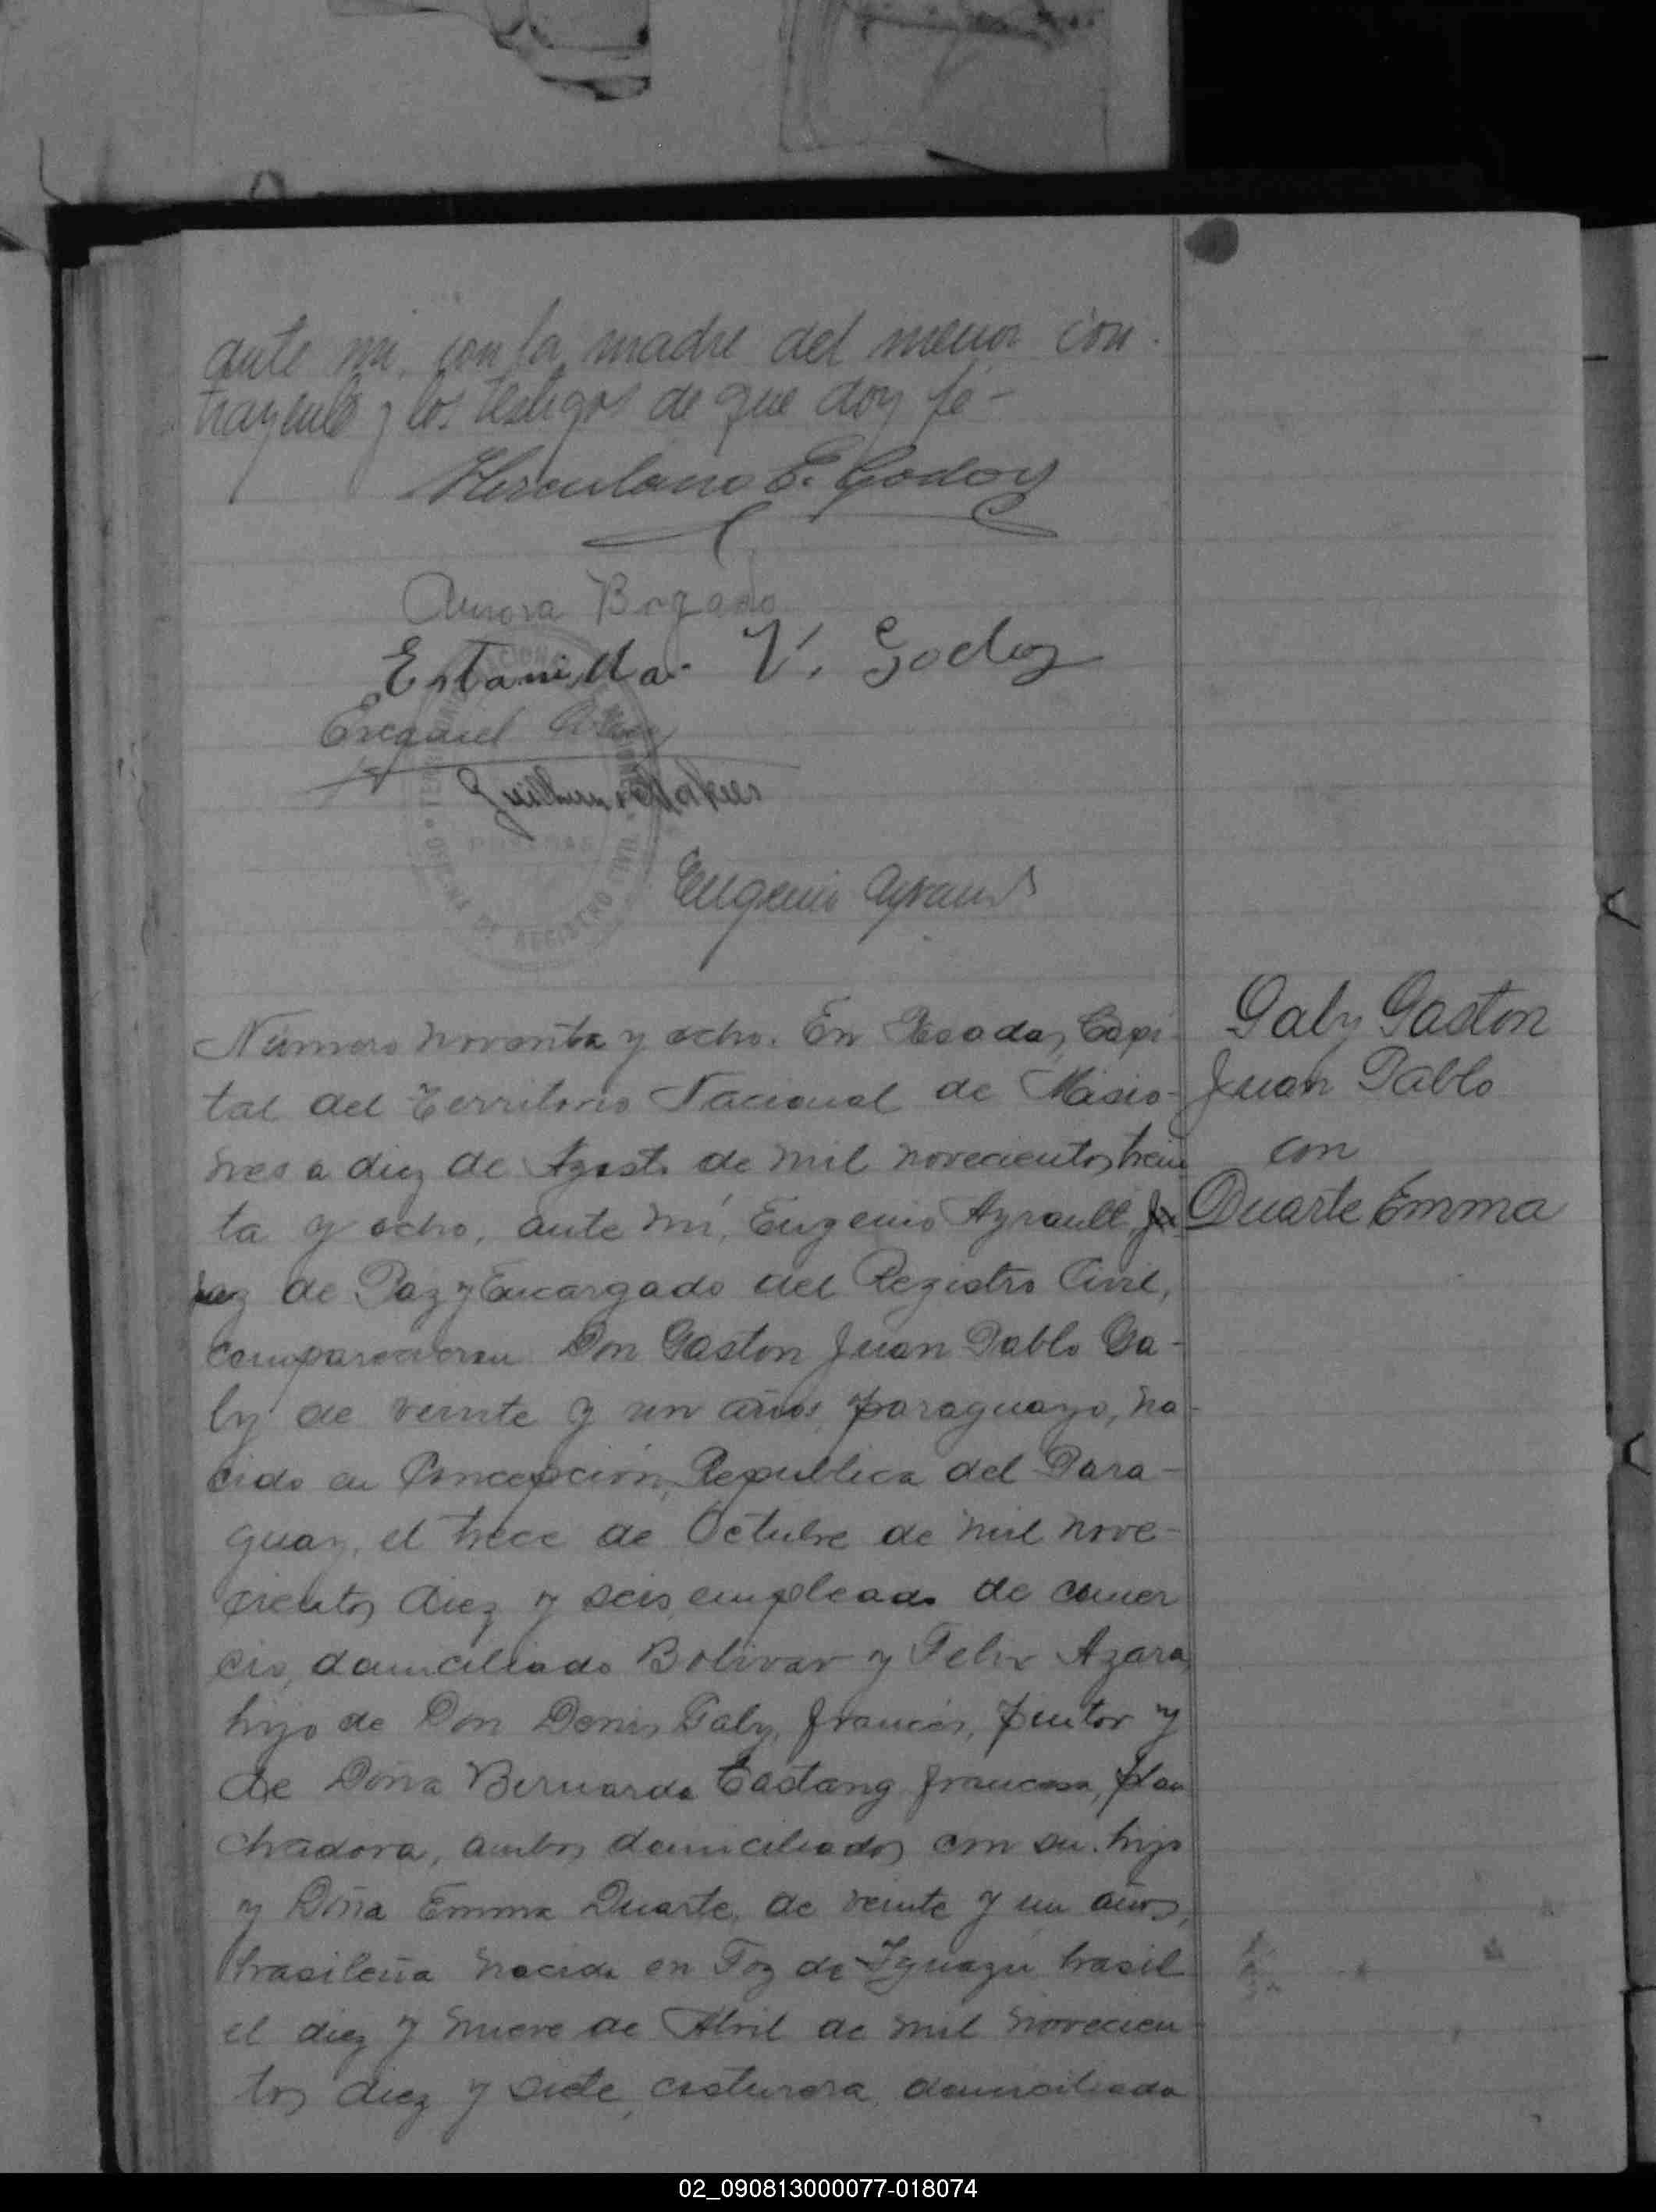 ante mi, con la madre del menor con-
trayente y los testigos de que doy fé-
Herculano E. Godoy
Aurora Bogado
Estanislla V. Godoy
Ezequiel
Guillermo
Eugenio Ayrault
OFICINA DE REGISTRO CIVIL
POSADAS
Número noventa y ocho. En Posadas, Capi-
tal del Territorio Nacional de Misio-
nes a diez de Agosto de mil novecientos trein
ta y ocho, ante mí, Eugenio Ayrault, Ju
ez de Paz y Encargado del Registro Civil,
comparecieron Don Gaston Juan Pablo Ga-
by de veinte y un años, paraguayo, na-
cido en Concepción, Republica del Para-
guay, el trece de Octubre de mil nove-
cientos diez y seis, empleado de comer
cio, domiciliado Bolivar y Felix Azara,
hijo de Don Denis Gaby, francés, pintor y
de Doña Bernarda Castang francesa, plan
chadora, ambos domiciliados con su hijo
y Doña Emma Duarte, de veinte y un años,
brasileña nacida en Foz de Iguazu brasil
el diez y nueve de Abril de mil novecien
tos diez y siete, costurera, domiciliada
Gaby Gaston
Juan Pablo
con
Duarte Emma
02_090813000077-018074